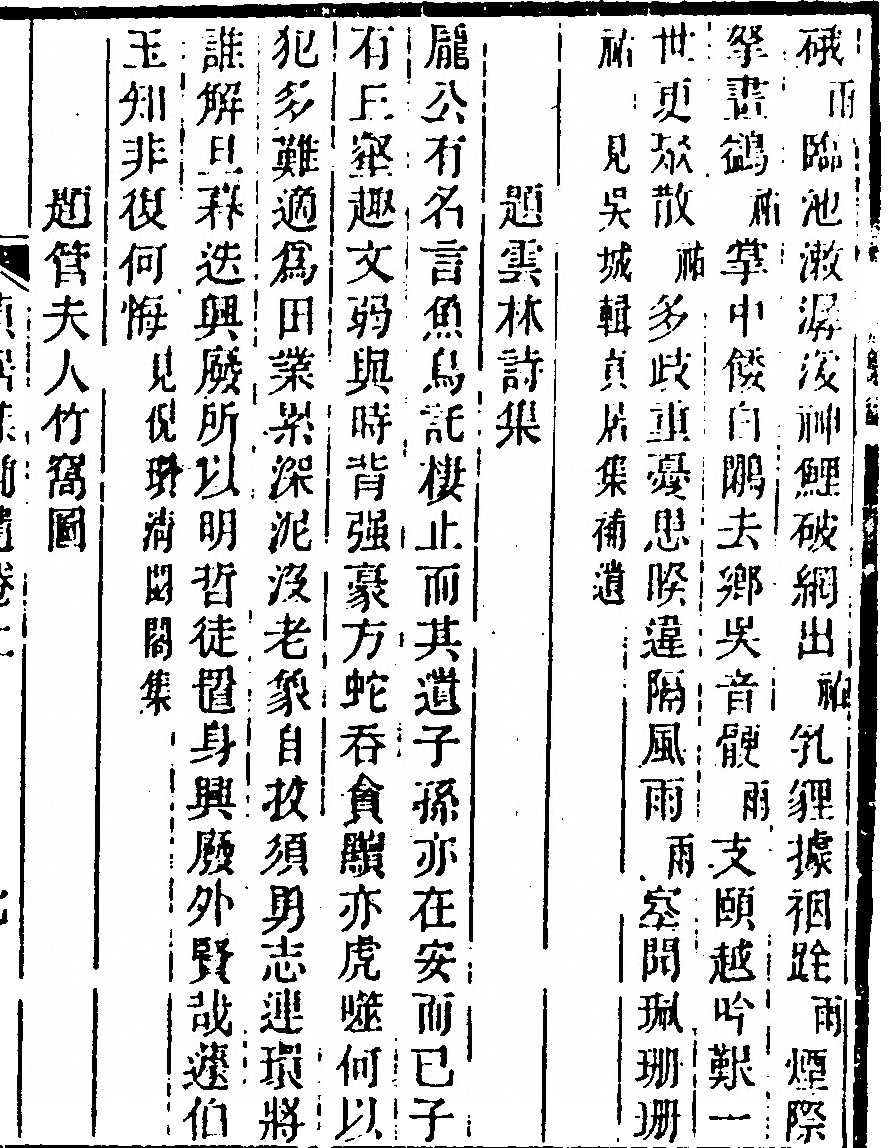 硪雨臨池漱潺湲神鯉破網出祐乳貍據裀跧雨煙際
孥畫鷁祐掌中倭白鷴去鄉吳音骾雨支頤越吟艱一
世更聚散祐多歧重憂思睽違隔風雨雨空聞珮珊珊
祐見吳城輯貞居集補遺
題雲林詩集
龐公有名言魚鳥託棲止而其遺子孫亦在安而已子
有丘壑趣文弱與時背强豪方蛇吞貪黷亦虎噬何以
犯多難適爲田業累深泥沒老象自拔須勇志連環將
誰解旦暮迭興廢所以明哲徒置身興廢外賢哉蘧伯
玉知非復何悔見倪瓚清閟閣集
題管夫人竹窩圖